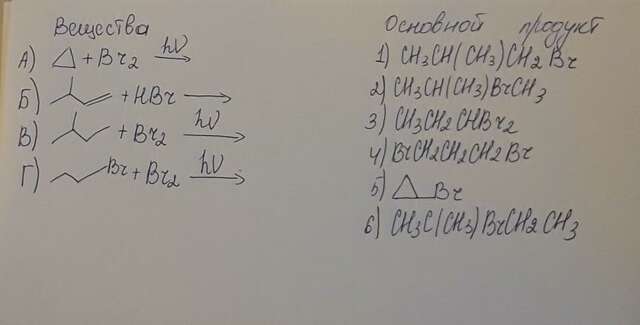 Вещества
А) + Br2 hν
Б) + HBr
В) + Br2 hν
Г) Br + Br2 hν
Основной продукт
1) CH3CH(CH3)CH2Br
2) CH3CH(CH3)BrCH3
3) CH3CH2CHBr2
4) BrCH2CH2CH2Br
5) Br
6) CH3C(CH3)BrCH2CH3